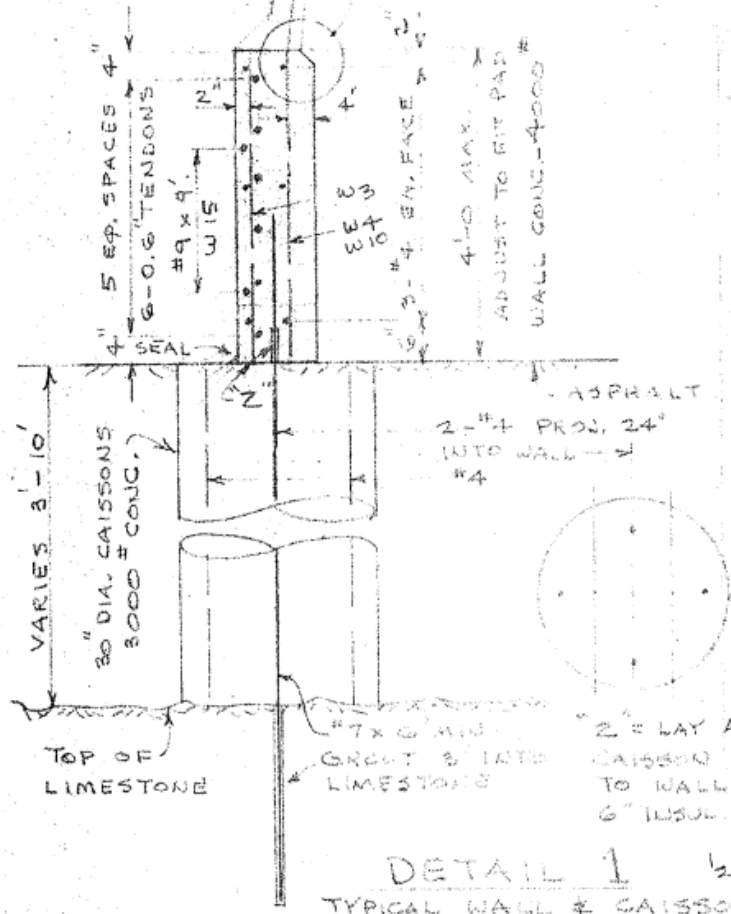 5 EQ. SPACES 4"
6-0.6" TENDONS
2"
4"
#9 x 9'
W15
W3
W4
W10
3-#4 EA. FACE
4'-0 MAX.
ADJUST TO FIT PAD
WALL CONC-4000#
SEAL
"Z"
ASPHALT
2-#4 PROJ. 24"
INTO WALL
#4
VARIES 3'-10'
30" DIA. CAISSONS
3000# CONC.
TOP OF
LIMESTONE
#7 x 6' MIN
GROUT 3' INTO
LIMESTONE
= LAY A
CAISSON
TO WALL
6" INSUL.
DETAIL 1
TYPICAL WALL & CAISSO